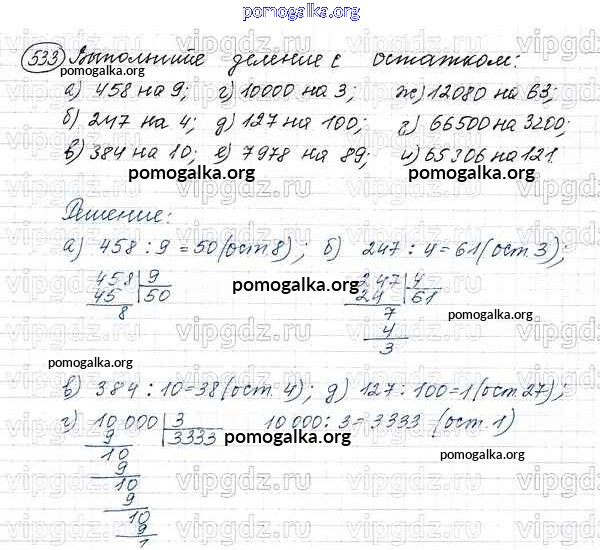 pomogalka.org
533 Выполните деление с остатком:
pomogalka.org
а) 458 на 9; г) 10000 на 3; ж) 12080 на 63;
pomogalka.org
б) 247 на 4; д) 127 на 100; з) 66500 на 3200;
в) 384 на 10; е) 7978 на 89; и) 65306 на 121.
pomogalka.org pomogalka.org
Решение:
а) 458 : 9 = 50 (ост. 8); б) 247 : 4 = 61 (ост. 3);
pomogalka.org
458 9 247 4
45 50 24 61
8 7
pomogalka.org pomogalka.org
4
3
pomogalka.org
в) 384 : 10 = 38 (ост. 4); д) 127 : 100 = 1 (ост. 27);
г) 10 000 3 10 000 : 3 = 3333 (ост. 1)
9 3333
pomogalka.org pomogalka.org
10
9
10
9
10
9
1
vipgdz.ru